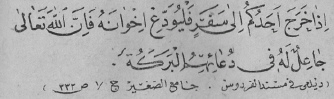 إِذَا خَرَجَ أَحَدُكُمْ إِلَى سَفَرٍ فَلْيُوَدِّعْ إِخْوَانَهُ فَإِنَّ اللهَ تَعَالَى
جَاعِلٌ لَهُ فِى دُعَائِهِمُ الْبَرَكَةَ .
( ديلمى فى مسند الفردوس . جامع الصغير ج ١ ص ٣٣٣ )